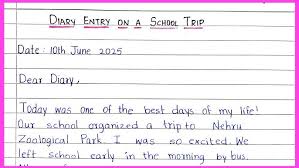 DIARY ENTRY ON A SCHOOL TRIP
Date : 10th June 2025
Dear Diary,
Today was one of the best days of my life!
Our school organized a trip to Nehru
Zoological Park. I was so excited. We
left school early in the morning by bus.